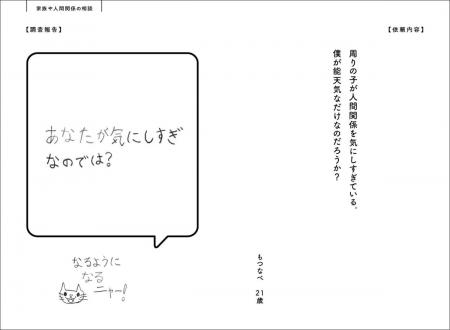 家族や人間関係の相談
【依頼内容】
周りの子が人間関係を気にしすぎている。
僕が能天気なだけなのだろうか?
もつなべ 21歳
【調査報告】
あなたが気にしすぎ
なのでは?
なるように
なる
ニャー!